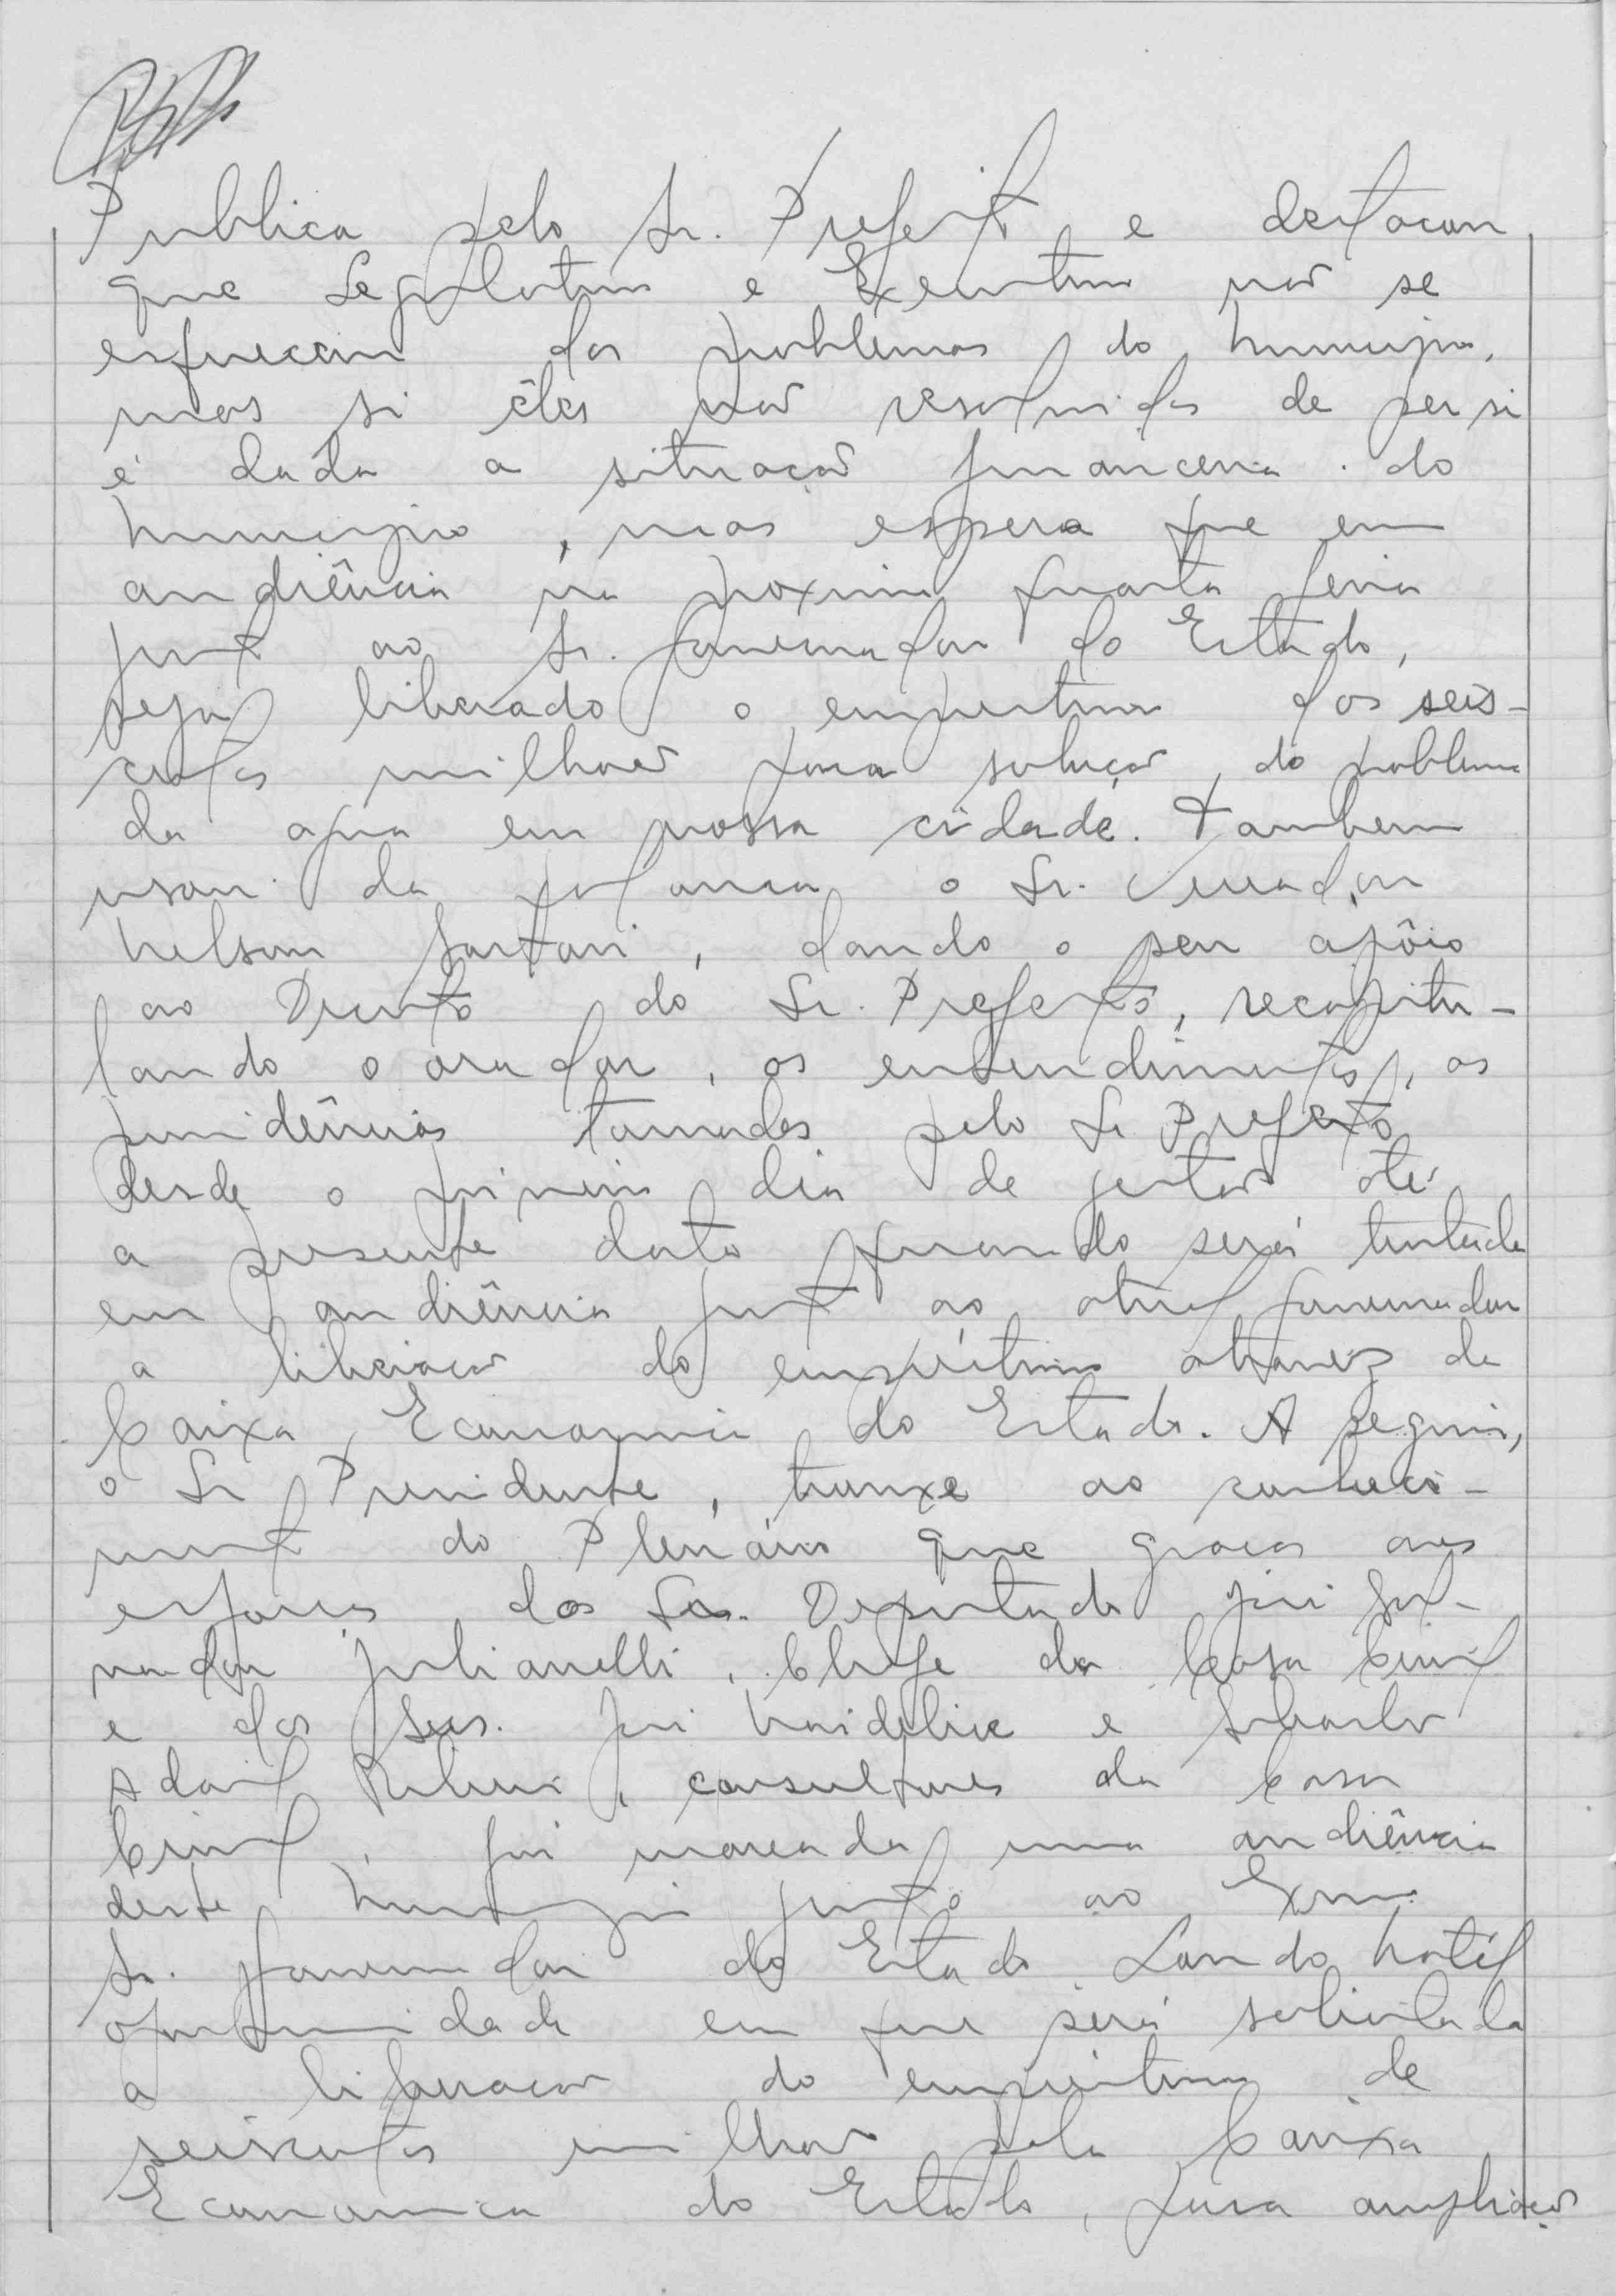 Publica pelo Sr. Prefeito e destacou
que Legislativo e Executivo não se
esquecem dos problemas do municipio,
mas si êles não resolvidos de per si
é dada a situação financeira do
municipio, mas espera que em
audiência na proxima quarta feira
junto ao Sr. Governador do Estado,
seja liberado o emprestimo dos seis-
centos milhões para solução do problema
da agua em nossa cidade. Tambem
usou da palavra o Sr. Vereador
Nelson Sartori, dando o seu apôio
ao Decreto do Sr. Prefeito, recapitu-
lando o orador, os entendimentos, as
providências tomadas pelo Sr. Prefeito
desde o primeiro dia de gestão até
a presente data quando será tentada
em audiência junto ao atual Governador
a liberação do empréstimo atravez da
Caixa Economica do Estado. A seguir,
o Sr. Presidente, trouxe ao conheci-
mento do Plenário que graças aos
esforços dos Srs. Deputado José Sal-
vador Julianelli, Chefe da Casa Civil
e dos Srs. José e
Adail, consultores da Casa
Civil, foi marcada uma audiência
deste Municipio junto ao Exmo.
Sr. Governador do Estado Laudo Natél
oportunidade em que será solicitada
a liberação do empréstimo de
seiscentos milhões pela Caixa
Economica do Estado, para ampliação